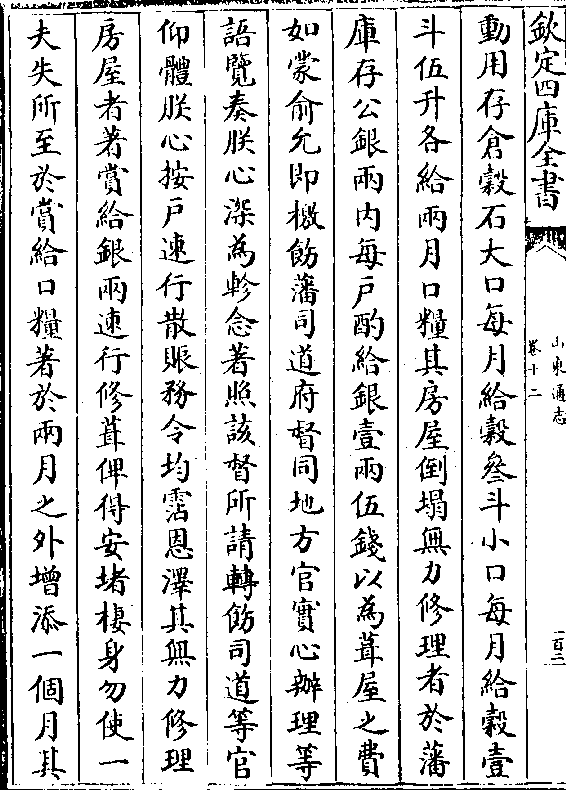 欽定四庫全書
山東通志
卷十二
一百二
動用存倉穀石大口每月給穀叁斗小口每月給穀壹
斗伍升各給兩月口糧其房屋倒塌無力修理者於藩
庫存公銀兩内每戶酌給銀壹兩伍錢以為葺屋之費
如蒙俞允即檄飭藩司道府督同地方官實心辦理等
語覽奏朕心深為軫念著照該督所請轉飭司道等官
仰體朕心按戶速行散賑務令均霑恩澤其無力修理
房屋者著賞給銀兩速行修葺俾得安堵棲身勿使一
夫失所至於賞給口糧著於兩月之外增添一個月其